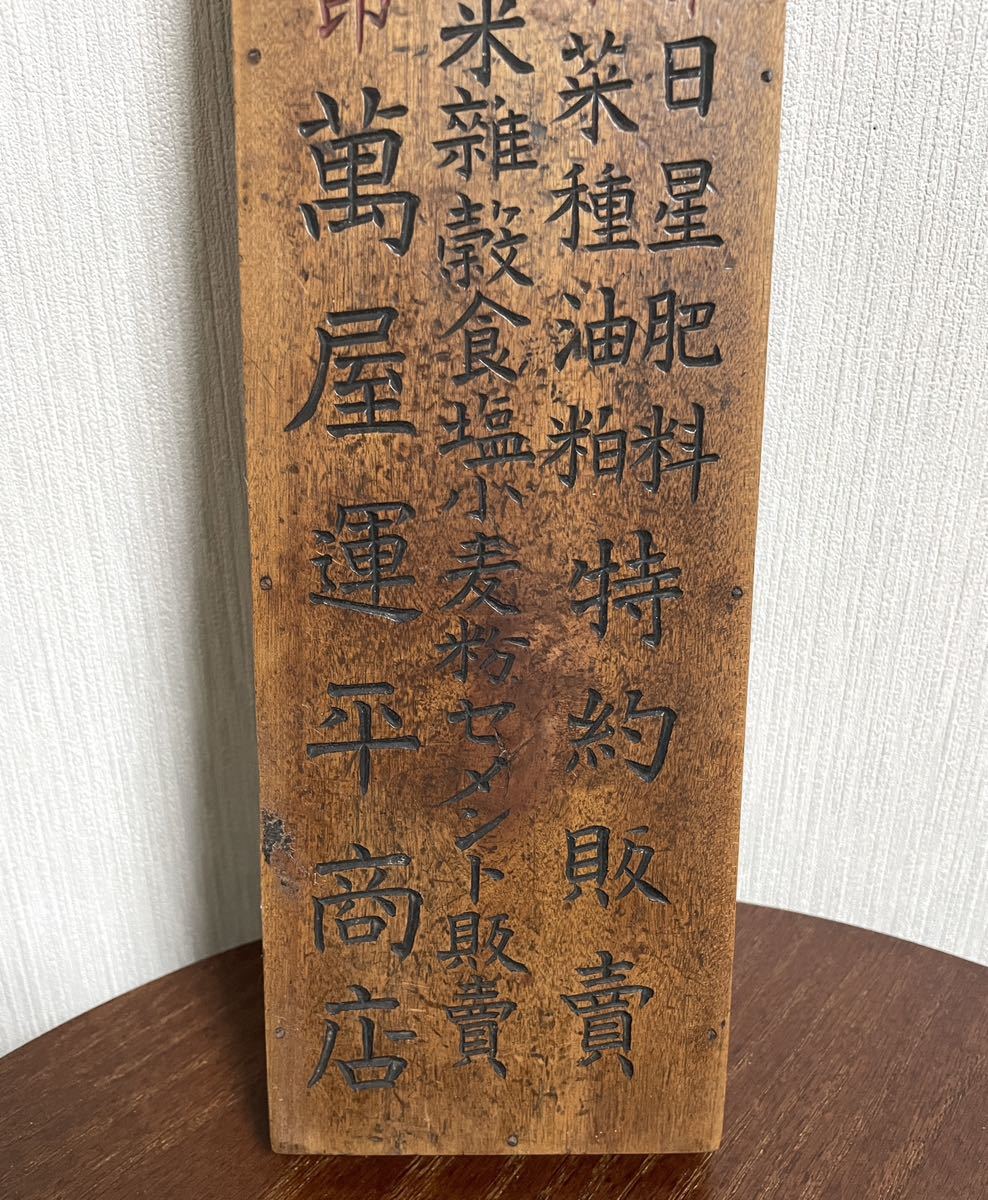 日星肥料
菜種油粕
特約販賣
米雜穀食塩小麦粉セメント販賣
印
萬屋運平商店